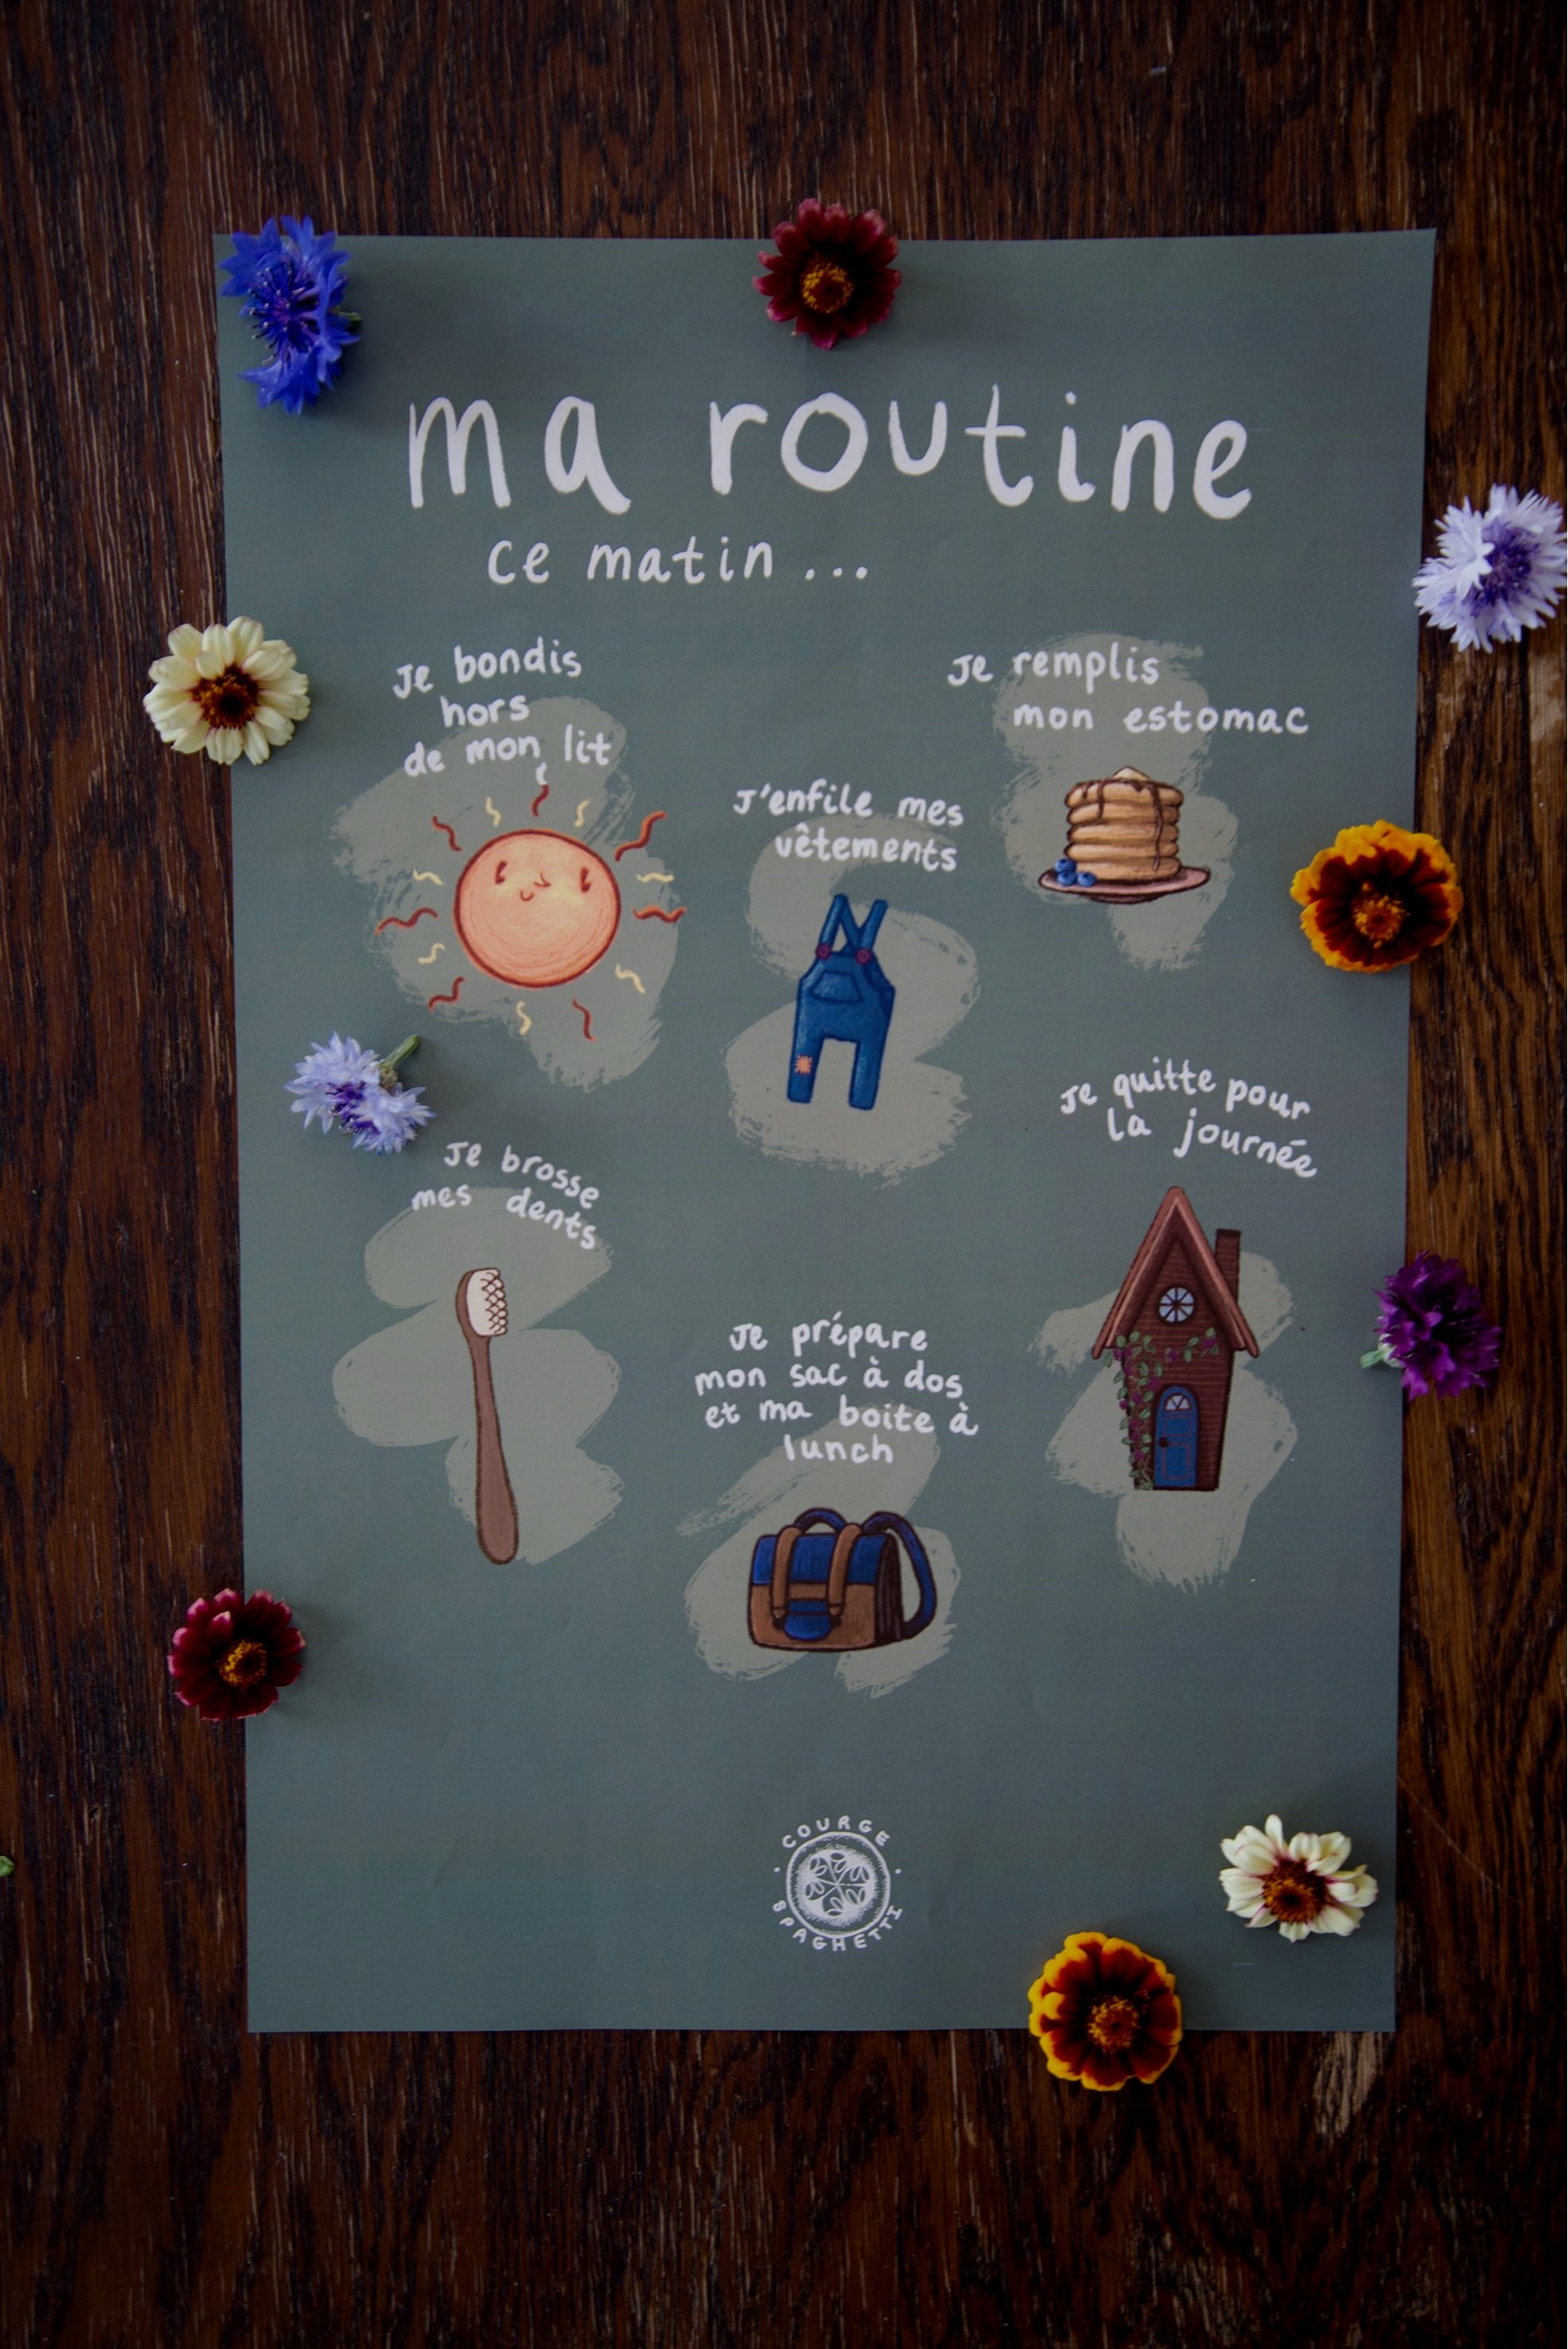 ma routine
ce matin ...
je bondis
hors
de mon lit
j'enfile mes
vêtements
je remplis
mon estomac
je brosse
mes dents
je prépare
mon sac à dos
et ma boite à
lunch
je quitte pour
la journée
COURGE
SPAGHETTI